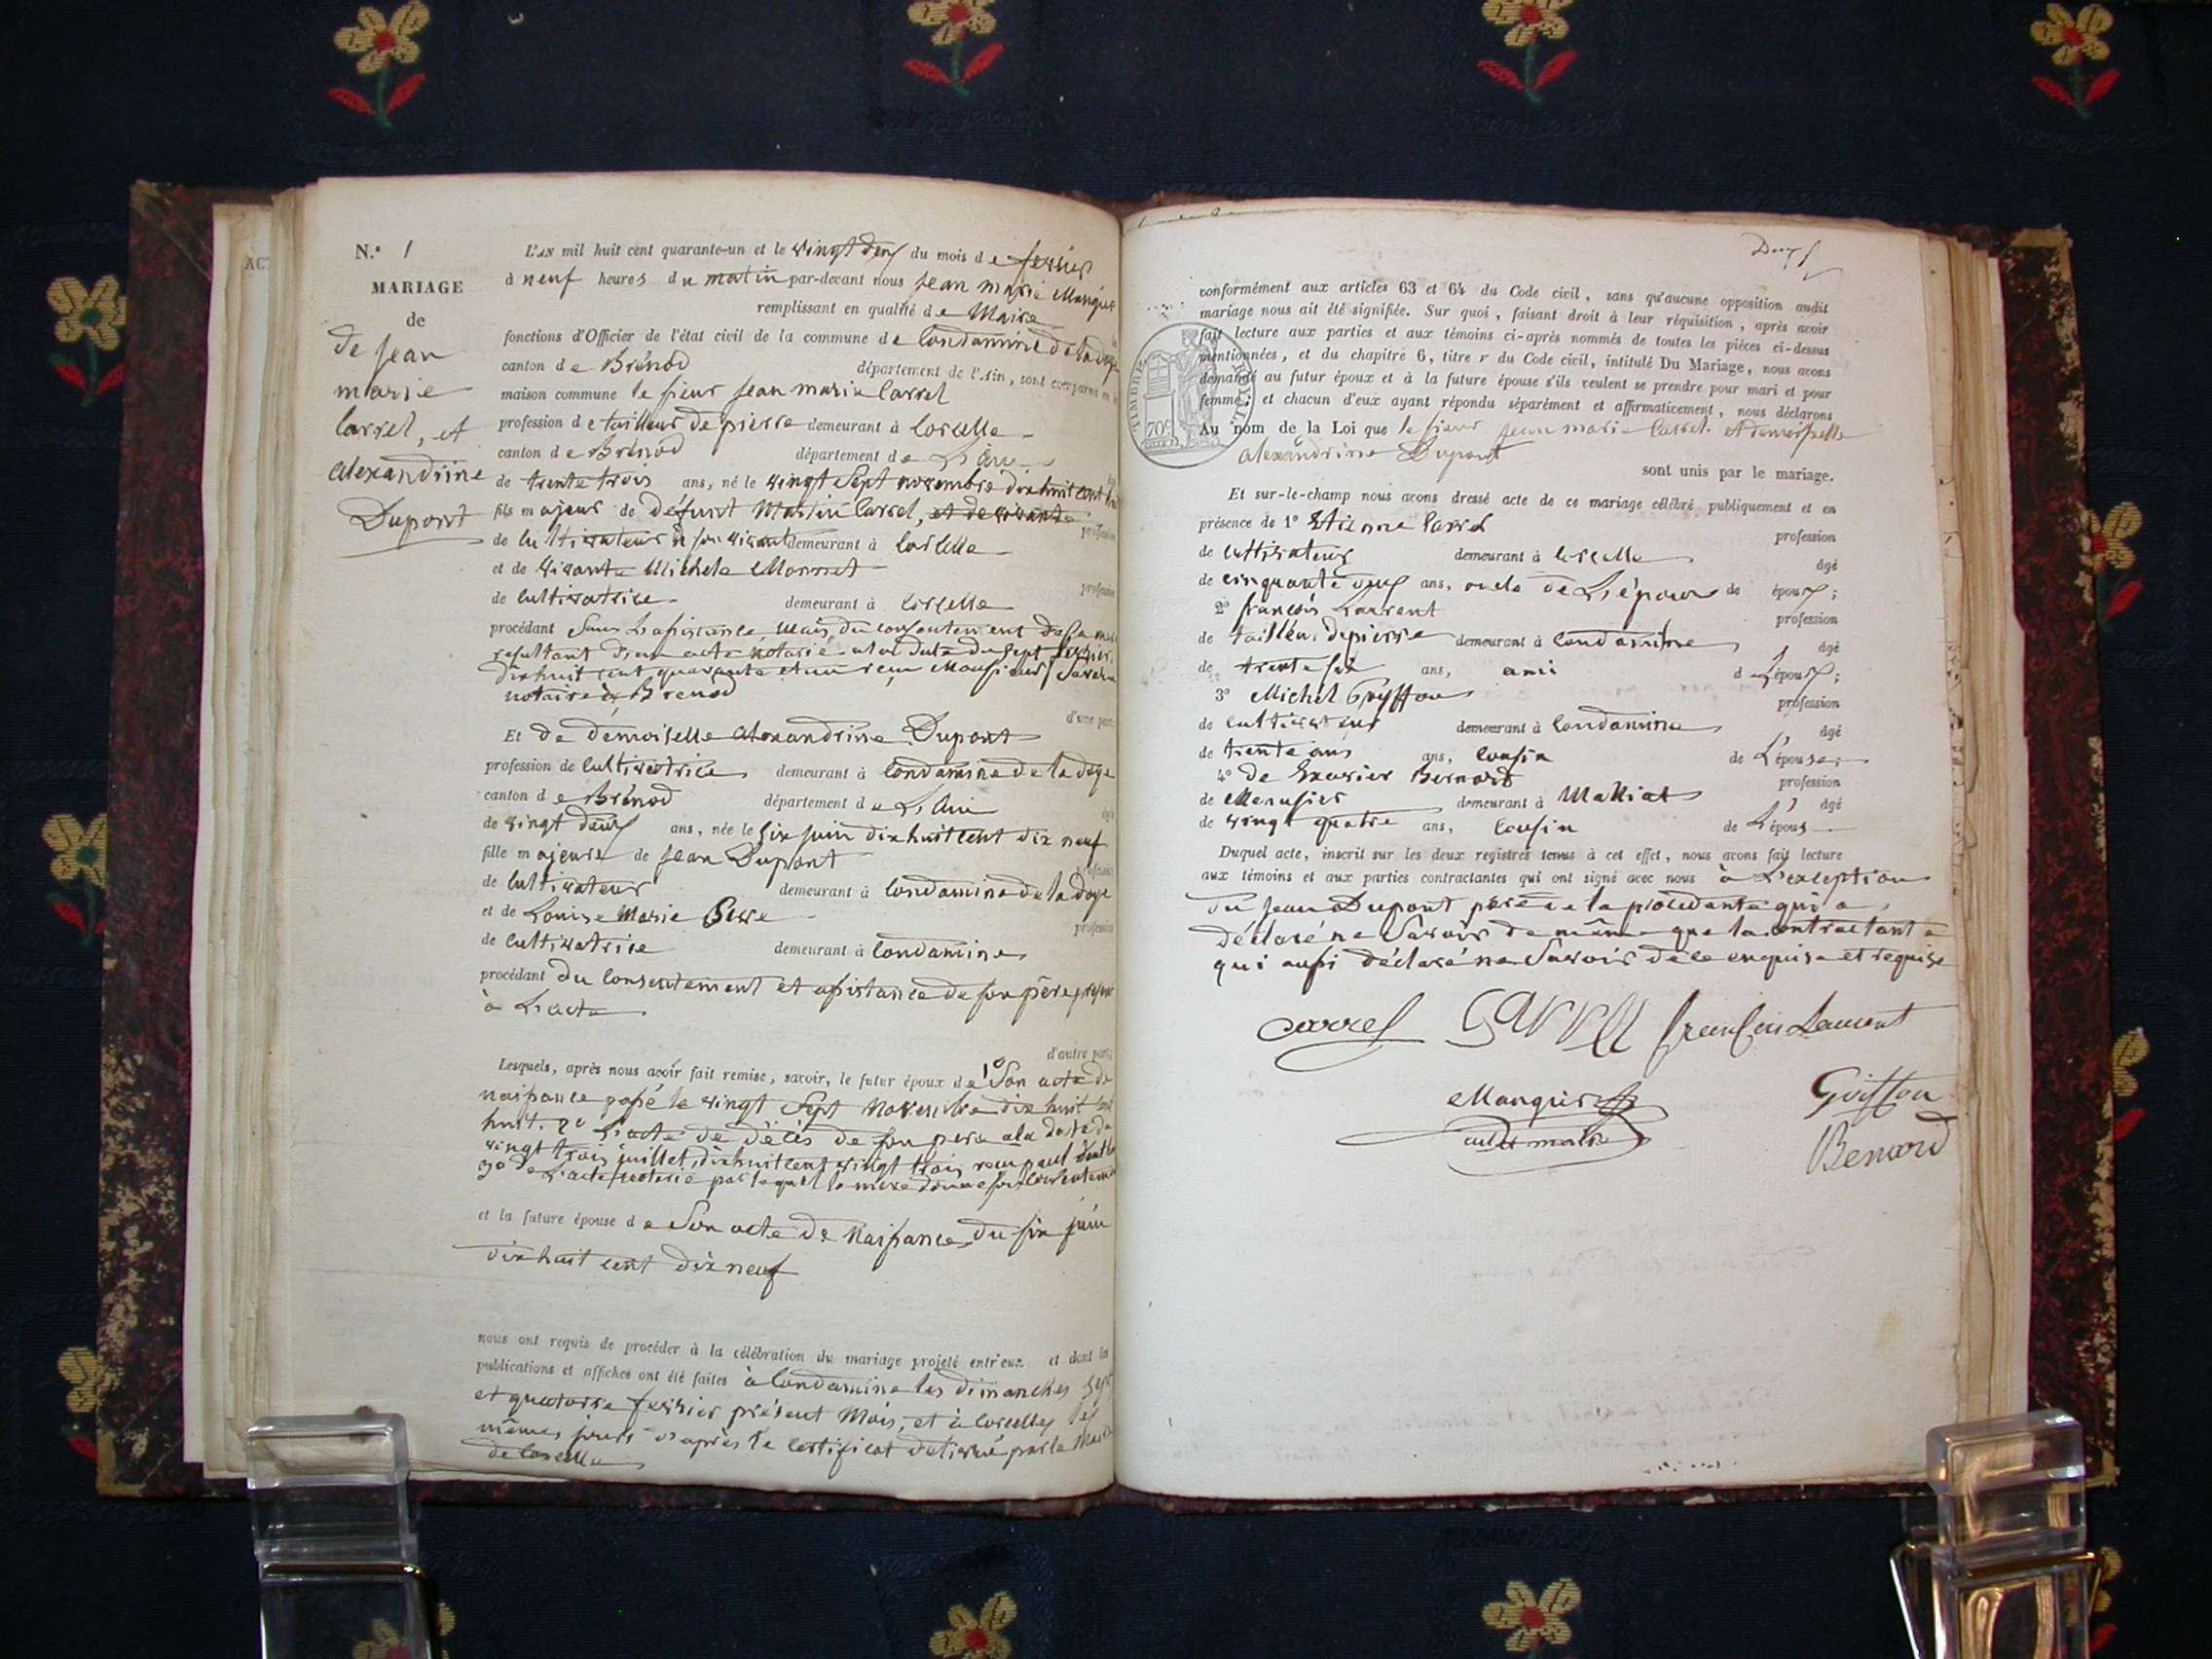 N.º 1
MARIAGE
de
de jean
marie
Carrel, et
alexandrine
Dupont
L'AN mil huit cent quarante-un et le vingt deux du mois de fevrier
à neuf heures du matin par-devant nous jean marie Manquis
remplissant en qualité de Maire
fonctions d'Officier de l'état civil de la commune de Condamine de la doye
canton de Brénod département de l'Ain, sont comparus en la
maison commune le sieur jean marie Carrel
profession de tailleur de pierre demeurant à Corcelle
canton de Brénod département de L'Ain
de trente trois ans, né le vingt Sept novembre dix huit cent huit
fils majeur de défunt Martin Carrel, et de vivante
de Cultivateur à son vivant demeurant à Corcelle
et de vivante Michele Monnet profession
de Cultivatrice demeurant à Corcelle
procédant Sans L'assistance, Mais du consentement de sa mère
resultant d'un acte notarié à la date du sept fevrier
dix huit cent quarante et un reçu Monsieur Savarin
notaire à Brenod
d'une part
Et de demoiselle alexandrine Dupont
profession de Cultivatrice demeurant à Condamine de la doye
canton de Brénod département de L'Ain
de vingt deux ans, née le six juin dix huit cent dix neuf
fille majeure de jean Dupont
de Cultivateur demeurant à Condamine de la doye
et de Louise Marie profession
de Cultivatrice demeurant à Condamine
procédant du Consentement et assistance de son père, présent
à L'acte
d'autre part;
Lesquels, après nous avoir fait remise, savoir, le futur époux de 1º Son acte de
naissance passé le vingt Sept Novembre dix huit cent
huit. 2º L'acte de décès de son pere à la date du
vingt trois juillet dix huit cent vingt trois
3º de L'acte notarié par lequel la mere donne son consentement
et la future épouse de Son acte de Naissance du six juin
dix huit cent dix neuf
nous ont requis de procéder à la célébration du mariage projeté entr'eux et dont les
publications et affiches ont été faites à Condamine les dimanches sept
et quatorze fevrier présent Mois, et à Corcelles les
mêmes jours d'après le Certificat delivré par le Maire
de Corcelle
Deux
conformément aux articles 63 et 64 du Code civil, sans qu'aucune opposition audit
mariage nous ait été signifiée. Sur quoi, faisant droit à leur réquisition, après avoir
fait lecture aux parties et aux témoins ci-après nommés de toutes les pièces ci-dessus
mentionnées, et du chapitre 6, titre v du Code civil, intitulé Du Mariage, nous avons
demandé au futur époux et à la future épouse s'ils veulent se prendre pour mari et pour
femme; et chacun d'eux ayant répondu séparément et affirmativement, nous déclarons
Au nom de la Loi que le sieur jean marie Carrel et demoiselle
alexandrine Dupont
sont unis par le mariage.
TIMBRE ROYAL
70c
Et sur-le-champ nous avons dressé acte de ce mariage célébré publiquement et en
présence de 1º Etienne Carrel profession
de cultivateur demeurant à Corcelle âgé
de cinquante deux ans, oncle de L'époux de époux;
2º françois Laurent profession
de tailleur de pierre demeurant à Condamine âgé
de trente six ans, ami de L'époux;
3º Michel Goyffon profession
de cultivateur demeurant à Condamine âgé
de trente ans ans, Cousin de L'épouse
4º de Bernard profession
de Menusier demeurant à Malliat âgé
de vingt quatre ans, Cousin de L'épous
Duquel acte, inscrit sur les deux registres tenus à cet effet, nous avons fait lecture
aux témoins et aux parties contractantes qui ont signé avec nous à L'exception
du jean Dupont père de la procedante qui a
déclaré ne Savoir de même que la contractante
qui aussi déclaré ne Savoir de ce enquise et requise
carrel Carrel françois Laurent
Manquis Goiffon
maire Bernard